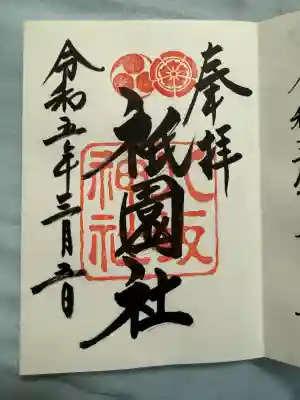 奉拝
祇園社
八坂神社
令和五年三月五日